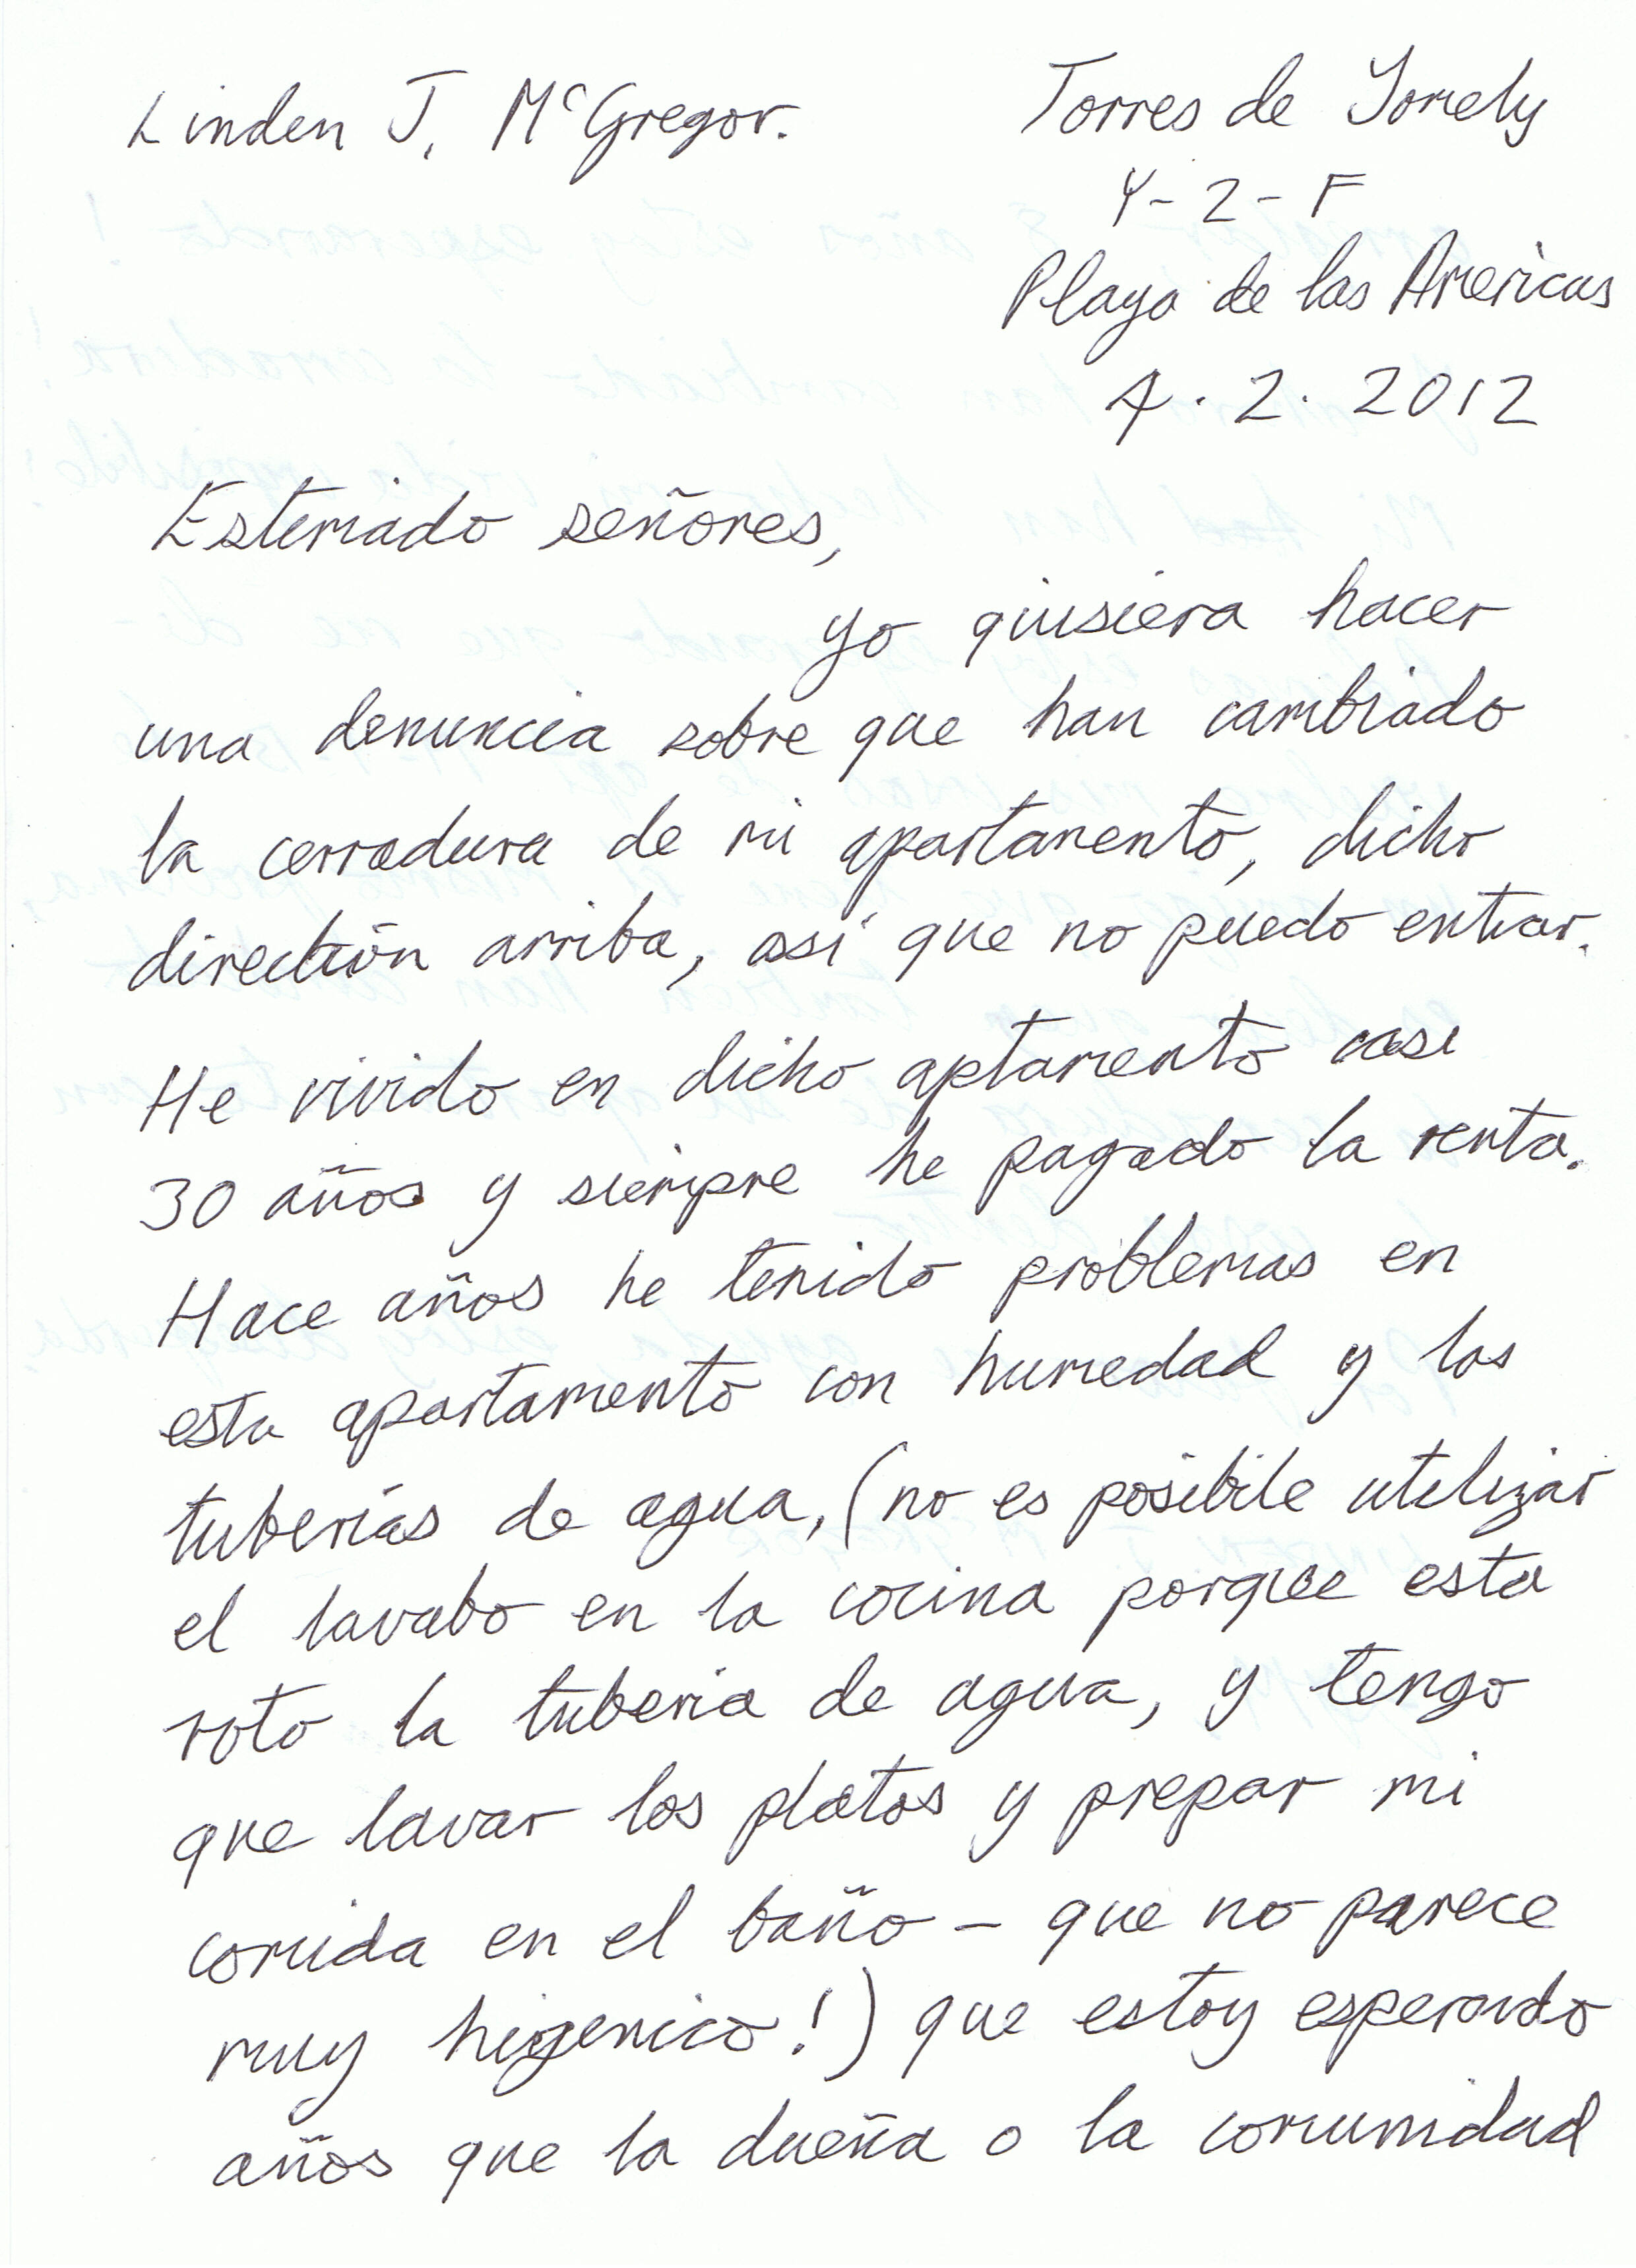 Linden J. McGregor.
Torres de Yomely
Y-2-F
Playa de las Americas
4.2.2012
Estemado señores,
yo quisiera hacer
una denuncia sobre que han cambiado
la cerradura de mi apartamento, dicho
dirección arriba, así que no puedo entrar.
He vivido en dicho aptamento casi
30 años y siempre he pagado la renta.
Hace años he tenido problemas en
esta apartamento con humedad y las
tuberías de agua, (no es posibile utilizar
el lavabo en la cocina porque esta
roto la tuberia de agua, y tengo
que lavar los platos y prepar mi
comida en el baño - que no parece
muy higenico!) que estoy esperando
años que la dueña o la comunidad